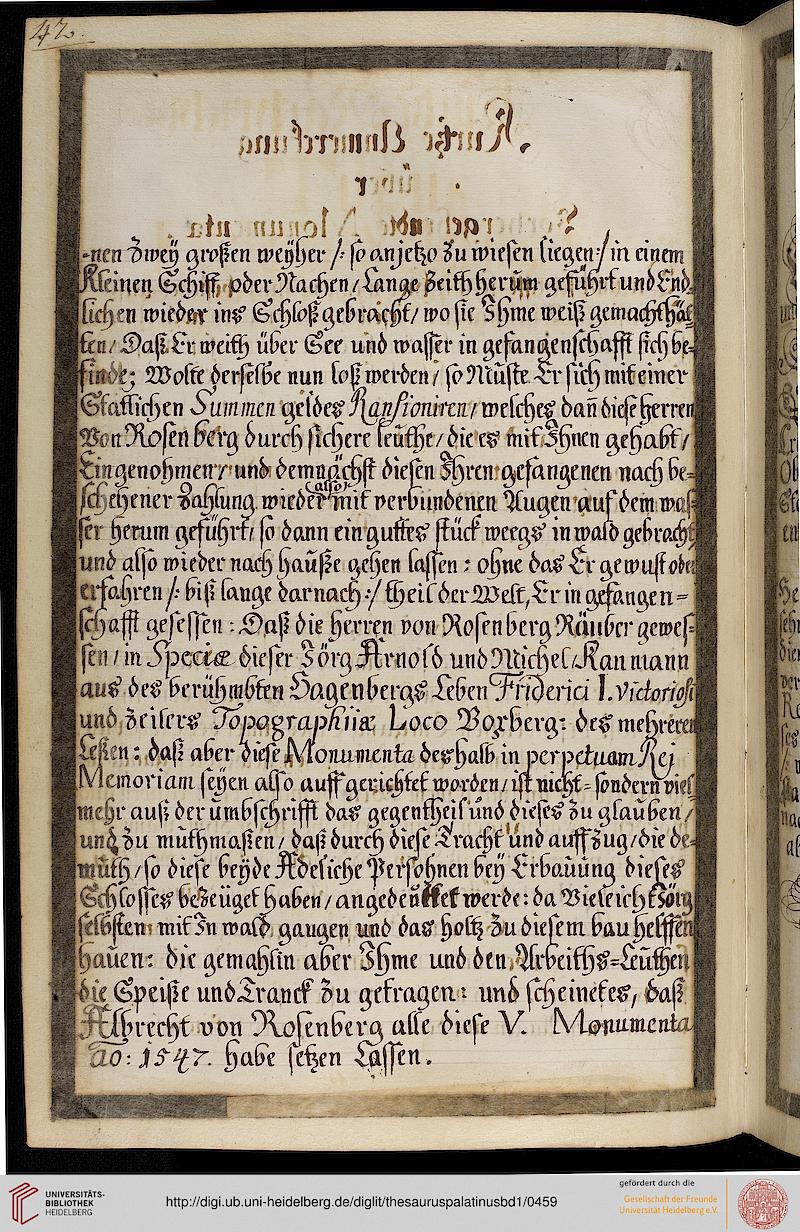 42.
Kurtze Anmerckung
über
-nen Zweÿ großen weÿher /: so anjetzo zu wiesen liegen:/ in einem
Kleinen Schiff, oder Nachen/ Lange Zeith herum geführt und End-
lichen wieder ins Schloß gebracht/ wo sie Ihme weiß gemacht hät-
ten/ Daß Er weith über See und wasser in gefangenschafft sich be-
finde; Wolte derselbe nun loß werden/ so Müste Er sich mit einer
Stattlichen Summen geldes Ranßioniren/ welches dañ diese herren
Von Rosenberg durch sichere leüthe/ die es mit Ihnen gehabt/
Eingenohmen/ und demnächst diesen Ihren gefangenen nach be-
schehener Zahlung wieder also mit verbundenen Augen auf dem was-
ser herum geführt/ so dann ein guttes stück weegs in wald gebracht,
und also wieder nach hauße gehen lassen: ohne das Er gewust oder
erfahren /: biß lange darnach:/ theil der Welt, Er in gefangen-
schafft gesessen: Daß die herren von Rosenberg Räuber gewes-
sen/ in Speciæ dieser Jörg Arnold und Michel/ Kan mann
aus des berühmbten Hagenbergs Leben Friderici I. victoriosi
und Zeilers Topographiiæ Loco Boxberg: des mehreren
Leßen: daß aber diese Monumenta deshalb in perpetuam Rej
Memoriam seÿen also auff gerichtet worden/ ist nicht- sondern viel-
mehr auß der ümbschrifft das gegentheil ünd dieses zu glauben/
und zu müthmaßen/ daß durch diese Tracht ünd auffzug/ die de-
müth/ so diese beÿde Adeliche Persohnen beÿ Erbauüng dieses
Schlosses bezeüget haben/ angedeüttet werde: da Vieleicht Jörg
selbsten mit In wald gangen und das holtz zu diesem bau helffen
hauen: die gemahlin aber Ihme und den Arbeiths-Leüthen
die Speiße und Tranck zu getragen: und scheinet es, daß
Albrecht von Rosenberg alle diese V. Monumenta
Ao: 1547. habe setzen Lassen.
UNIVERSITÄTS-
BIBLIOTHEK
HEIDELBERG
http://digi.ub.uni-heidelberg.de/diglit/thesauruspalatinusbd1/0459
gefördert durch die
Gesellschaft der Freunde
Universität Heidelberg e.V.